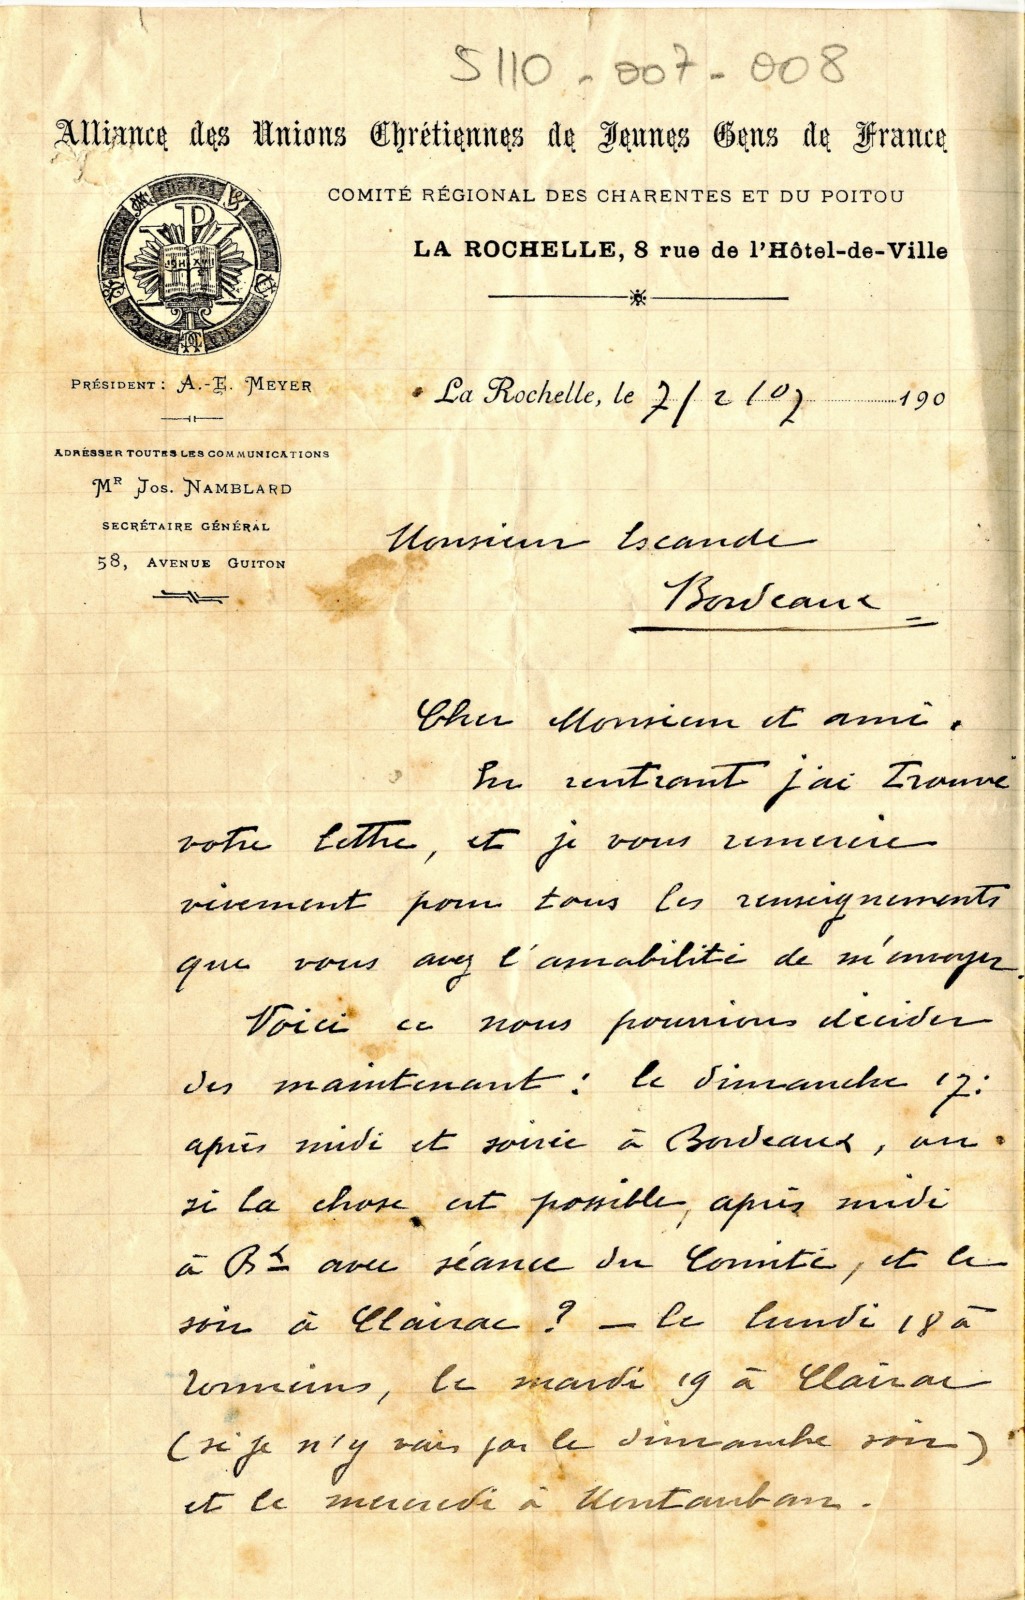 S110 - 007 - 008
Alliance des Unions Chrétiennes de Jeunes Gens de France
COMITÉ RÉGIONAL DES CHARENTES ET DU POITOU
LA ROCHELLE, 8 rue de l'Hôtel-de-Ville
JOH XVII
PRÉSIDENT: A.-E. MEYER
ADRESSER TOUTES LES COMMUNICATIONS
MR JOS. NAMBLARD
SECRÉTAIRE GÉNÉRAL
58, AVENUE GUITON
La Rochelle, le 7/2/07 190
Monsieur Escande
Bordeaux
Cher Monsieur et ami.
En rentrant j'ai trouvé
votre lettre, et je vous remercie
vivement pour tous les renseignements
que vous avez l'amabilité de m'envoyer.
Voici ce nous pourrions décider
des maintenant : le dimanche 17 :
après midi et soirée à Bordeaux, ou
si la chose est possible, après midi
à Bx avec séance du Comité, et le
soir à Clairac ? — le lundi 18 à
Tonneins, le mardi 19 à Clairac
(si je n'y vais pas le dimanche soir)
et le mercredi à Montauban.